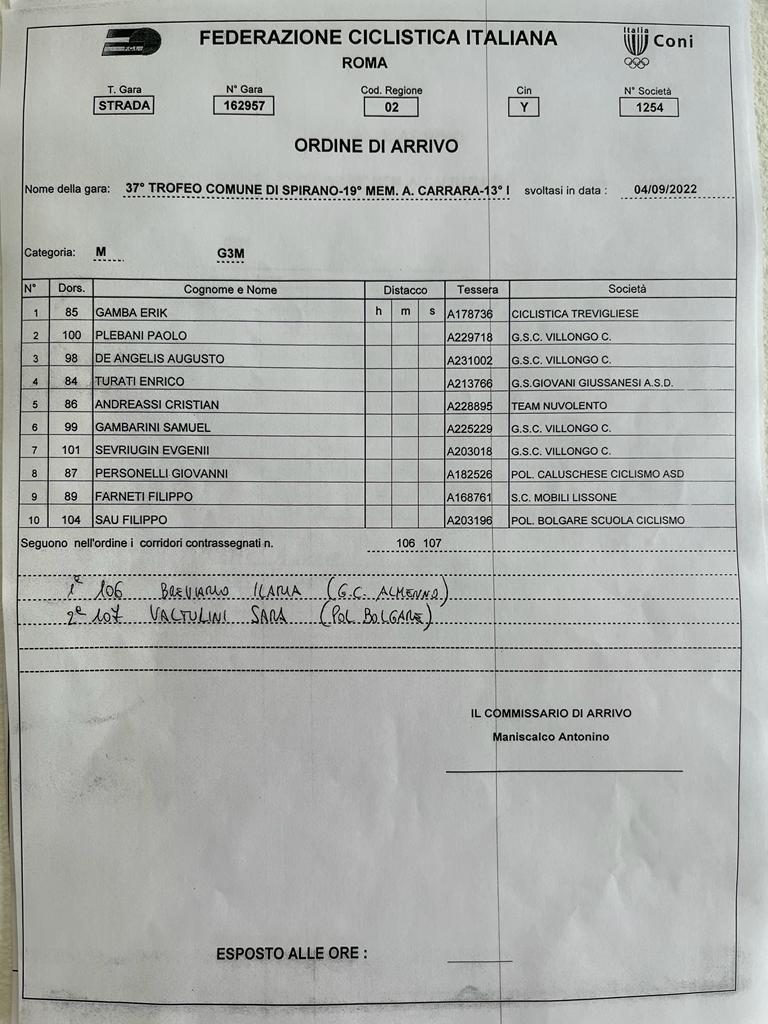 FEDERAZIONE CICLISTICA ITALIANA
Italia
Coni
ROMA
T. Gara N° Gara Cod. Regione Cin N° Società
STRADA 162957 02 Y 1254
ORDINE DI ARRIVO
Nome della gara: 37° TROFEO COMUNE DI SPIRANO-19° MEM. A. CARRARA-13° I svoltasi in data : 04/09/2022
Categoria: M G3M
N° Dors. Cognome e Nome Distacco Tessera Società
h m s
1 85 GAMBA ERIK A178736 CICLISTICA TREVIGLIESE
2 100 PLEBANI PAOLO A229718 G.S.C. VILLONGO C.
3 98 DE ANGELIS AUGUSTO A231002 G.S.C. VILLONGO C.
4 84 TURATI ENRICO A213766 G.S.GIOVANI GIUSSANESI A.S.D.
5 86 ANDREASSI CRISTIAN A228895 TEAM NUVOLENTO
6 99 GAMBARINI SAMUEL A225229 G.S.C. VILLONGO C.
7 101 SEVRIUGIN EVGENII A203018 G.S.C. VILLONGO C.
8 87 PERSONELLI GIOVANNI A182526 POL. CALUSCHESE CICLISMO ASD
9 89 FARNETI FILIPPO A168761 S.C. MOBILI LISSONE
10 104 SAU FILIPPO A203196 POL. BOLGARE SCUOLA CICLISMO
Seguono nell'ordine i corridori contrassegnati n. 106 107
1ª 106 BREVIARIO ILARIA (G.C. ALMENNO)
2ª 107 VALTULINI SARA (POL. BOLGARE)
IL COMMISSARIO DI ARRIVO
Maniscalco Antonino
ESPOSTO ALLE ORE :